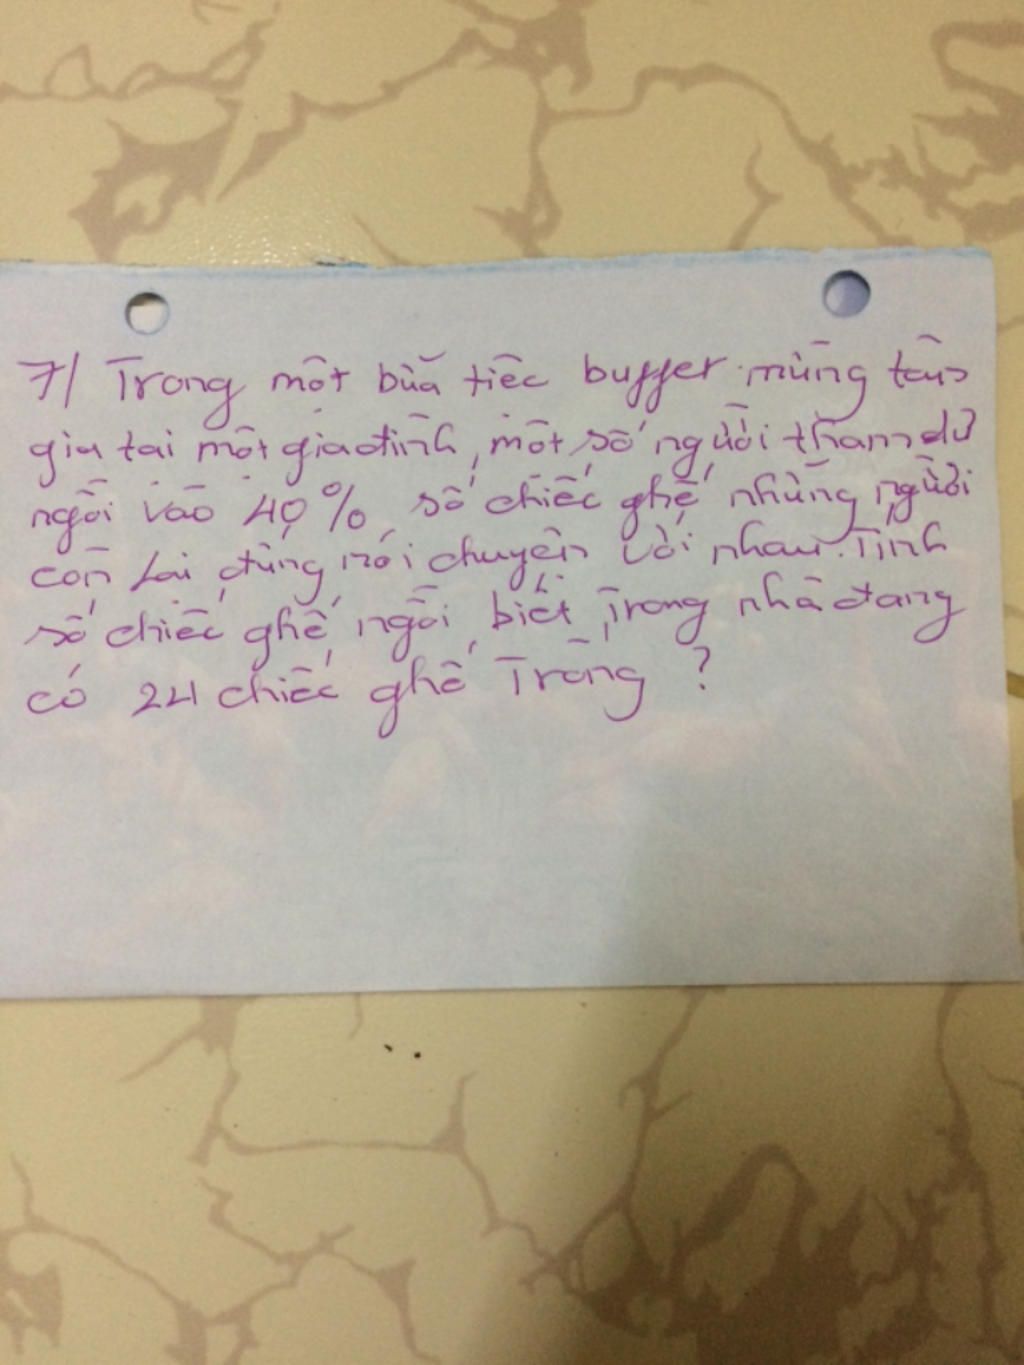 7/ Trong một bữa tiệc buffet mừng tân
gia tại một gia đình, một số người tham dự
ngồi vào 40% số chiếc ghế, những người
còn lại đứng nói chuyện với nhau. Tính
số chiếc ghế ngồi, biết trong nhà đang
có 24 chiếc ghế Trống ?